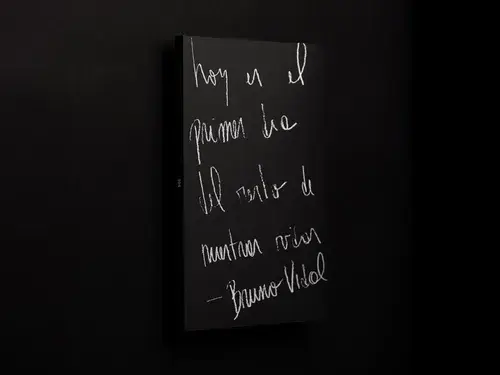 hoy es el
primer dia
del resto de
nuestras vidas
— Bruno Vidal